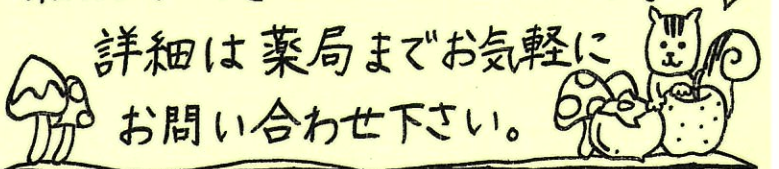 詳細は薬局までお気軽に
お問い合わせ下さい。